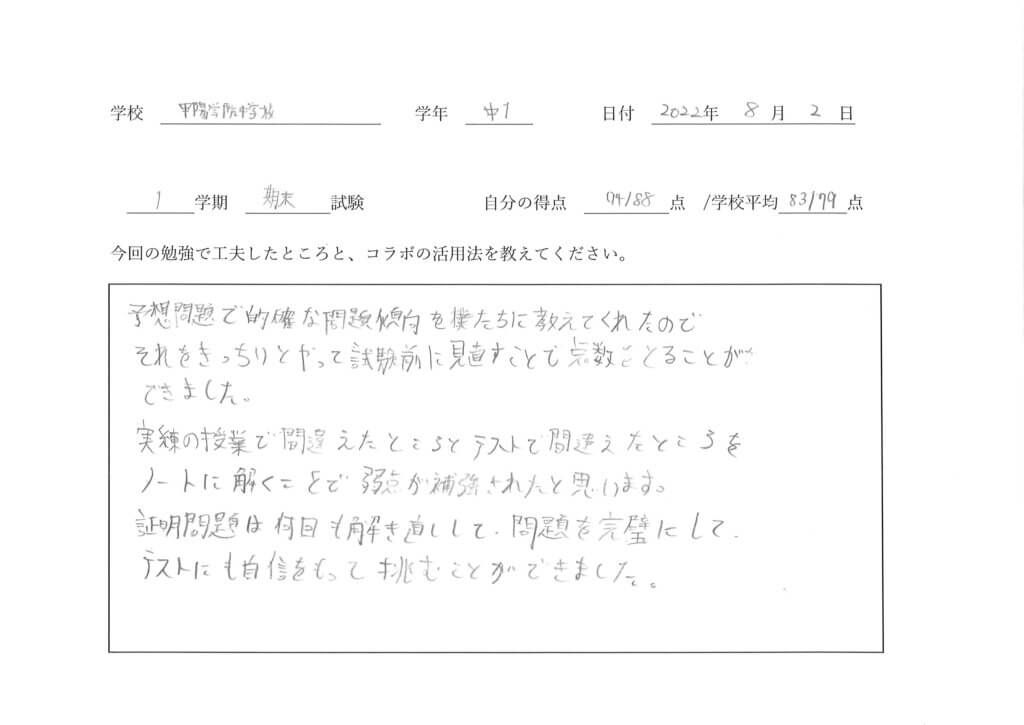 学校 甲陽学院中学校 学年 中1 日付 2022年 8月 2日
1学期 期末試験 自分の得点 94/88点 /学校平均83/79点
今回の勉強で工夫したところと、コラボの活用法を教えてください。
予想問題で的確な問題傾向を僕たちに教えてくれたので
それをきっちりとやって試験前に見直すことで点数をとることが
できました。
実練の授業で間違えたところとテストで間違えたところを
ノートに解くことで弱点が補強されたと思います。
証明問題は何回も解き直しして、問題を完璧にして、
テストにも自信をもって挑むことができました。